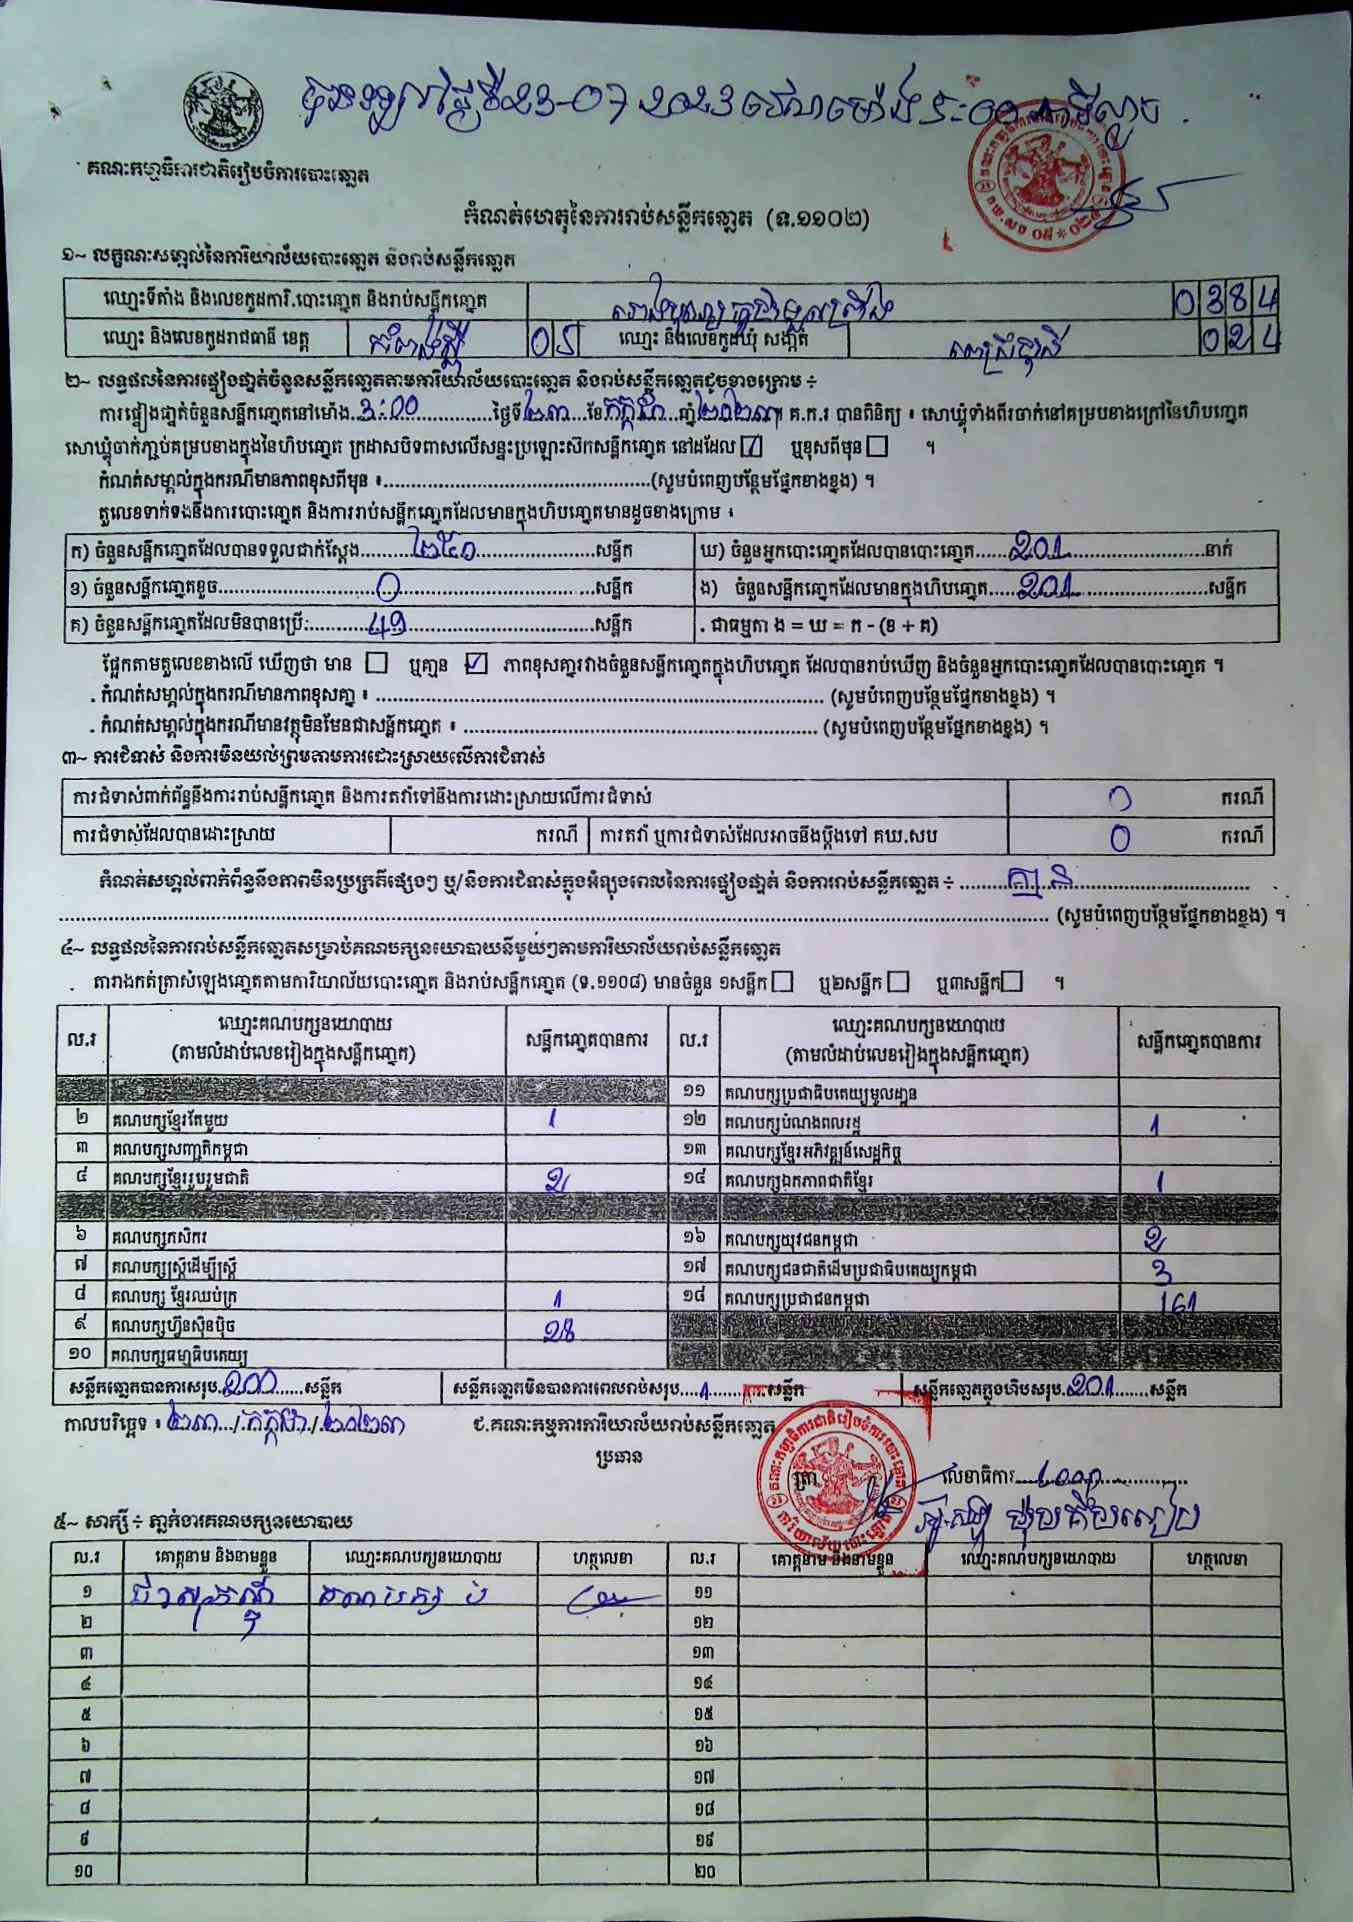 23-07 2023
គណៈកម្មាធិការជាតិរៀបចំការបោះឆ្នោត
កំណត់ហេតុនៃការរាប់សន្លឹកឆ្នោត (ទ.១១០២)
១~ លក្ខណៈសម្គាល់នៃការិយាល័យបោះឆ្នោត និងរាប់សន្លឹកឆ្នោត
ឈ្មោះទីតាំង និងលេខកូដការិ.បោះឆ្នោត និងរាប់សន្លឹកឆ្នោត 0384
ឈ្មោះ និងលេខកូដរាជធានី ខេត្ត កំពង់ស្ពឺ 05 ឈ្មោះ និងលេខកូដឃុំ សង្កាត់ 024
២~ លទ្ធផលនៃការផ្ទៀងផ្ទាត់ចំនួនសន្លឹកឆ្នោតតាមការិយាល័យបោះឆ្នោត និងរាប់សន្លឹកឆ្នោតដូចខាងក្រោម ÷
ការផ្ទៀងផ្ទាត់ចំនួនសន្លឹកឆ្នោតនៅម៉ោង 3:00 ថ្ងៃទី ២៣ ខែ កក្កដា ឆ្នាំ ២០២៣ គ.ក.រ បានពិនិត្យ ៖ សោឃ្លុំទាំងពីរចាក់នៅគម្របខាងក្រៅនៃហិបឆ្នោត
សោឃ្លុំចាក់ភ្ជាប់គម្របខាងក្នុងនៃហិបឆ្នោត ក្រដាសបិទពាសលើសន្ទះប្រឡោះស៊កសន្លឹកឆ្នោត នៅដដែល ☑ ឬខុសពីមុន ☐ ។
កំណត់សម្គាល់ក្នុងករណីមានភាពខុសពីមុន ៖ (សូមបំពេញបន្ថែមផ្នែកខាងខ្នង) ។
តួលេខទាក់ទងនឹងការបោះឆ្នោត និងការរាប់សន្លឹកឆ្នោតដែលមានក្នុងហិបឆ្នោតមានដូចខាងក្រោម ៖
ក) ចំនួនសន្លឹកឆ្នោតដែលបានទទួលជាក់ស្តែង ២៥០ សន្លឹក ឃ) ចំនួនអ្នកបោះឆ្នោតដែលបានបោះឆ្នោត 201 នាក់
ខ) ចំនួនសន្លឹកឆ្នោតខូច 0 សន្លឹក ង) ចំនួនសន្លឹកឆ្នោតដែលមានក្នុងហិបឆ្នោត 201 សន្លឹក
គ) ចំនួនសន្លឹកឆ្នោតដែលមិនបានប្រើ: 49 សន្លឹក . ជាធម្មតា ង = ឃ = ក - (ខ + គ)
ផ្អែកតាមតួលេខខាងលើ ឃើញថា មាន ☐ ឬគ្មាន ☑ ភាពខុសគ្នារវាងចំនួនសន្លឹកឆ្នោតក្នុងហិបឆ្នោត ដែលបានរាប់ឃើញ និងចំនួនអ្នកបោះឆ្នោតដែលបានបោះឆ្នោត ។
. កំណត់សម្គាល់ក្នុងករណីមានភាពខុសគ្នា ៖ (សូមបំពេញបន្ថែមផ្នែកខាងខ្នង) ។
. កំណត់សម្គាល់ក្នុងករណីមានវត្ថុមិនមែនជាសន្លឹកឆ្នោត ៖ (សូមបំពេញបន្ថែមផ្នែកខាងខ្នង) ។
៣~ ការជំទាស់ និងការមិនយល់ព្រមតាមការដោះស្រាយលើការជំទាស់
ការជំទាស់ពាក់ព័ន្ធនឹងការរាប់សន្លឹកឆ្នោត និងការតវ៉ាទៅនឹងការដោះស្រាយលើការជំទាស់ 0 ករណី
ការជំទាស់ដែលបានដោះស្រាយ ករណី ការតវ៉ា ឬការជំទាស់ដែលអាចនឹងប្តឹងទៅ គឃ.សប 0 ករណី
កំណត់សម្គាល់ពាក់ព័ន្ធនឹងភាពមិនប្រក្រតីផ្សេងៗ ឬ/និងការជំទាស់ក្នុងអំឡុងពេលនៃការផ្ទៀងផ្ទាត់ និងការរាប់សន្លឹកឆ្នោត ÷ គ្មាន
(សូមបំពេញបន្ថែមផ្នែកខាងខ្នង) ។
៤~ លទ្ធផលនៃការរាប់សន្លឹកឆ្នោតសម្រាប់គណបក្សនយោបាយនីមួយៗតាមការិយាល័យរាប់សន្លឹកឆ្នោត
. តារាងកត់ត្រាសំឡេងឆ្នោតតាមការិយាល័យបោះឆ្នោត និងរាប់សន្លឹកឆ្នោត (ទ.១១០៨) មានចំនួន ១សន្លឹក ☐ ឬ២សន្លឹក ☐ ឬ៣សន្លឹក ☐ ។
ល.រ ឈ្មោះគណបក្សនយោបាយ (តាមលំដាប់លេខរៀងក្នុងសន្លឹកឆ្នោត) សន្លឹកឆ្នោតបានការ ល.រ ឈ្មោះគណបក្សនយោបាយ (តាមលំដាប់លេខរៀងក្នុងសន្លឹកឆ្នោត) សន្លឹកឆ្នោតបានការ
១១ គណបក្សប្រជាធិបតេយ្យមូលដ្ឋាន
២ គណបក្សខ្មែរតែមួយ 1 ១២ គណបក្សបំណងពលរដ្ឋ 1
៣ គណបក្សសញ្ជាតិកម្ពុជា ១៣ គណបក្សខ្មែរអភិវឌ្ឍន៍សេដ្ឋកិច្ច
៤ គណបក្សខ្មែររួបរួមជាតិ 2 ១៤ គណបក្សឯកភាពជាតិខ្មែរ 1
៦ គណបក្សកសិករ ១៦ គណបក្សយុវជនកម្ពុជា 2
៧ គណបក្សស្ត្រីដើម្បីស្ត្រី ១៧ គណបក្សជនជាតិដើមប្រជាធិបតេយ្យកម្ពុជា 3
៨ គណបក្ស ខ្មែរឈប់ក្រ 1 ១៨ គណបក្សប្រជាជនកម្ពុជា 161
៩ គណបក្សហ្វ៊ុនស៊ិនប៉ិច 28
១០ គណបក្សធម្មាធិបតេយ្យ
សន្លឹកឆ្នោតបានការសរុប 200 សន្លឹក សន្លឹកឆ្នោតមិនបានការពេលរាប់សរុប 1 សន្លឹក សន្លឹកឆ្នោតក្នុងហិបសរុប 201 សន្លឹក
កាលបរិច្ឆេទ ៖ ២៣/កក្កដា/២០២៣ ជ.គណៈកម្មការការិយាល័យរាប់សន្លឹកឆ្នោត
ប្រធាន
ត្រា លេខាធិការ
៥~ សាក្សី ÷ ភ្នាក់ងារគណបក្សនយោបាយ
ល.រ គោត្តនាម និងនាមខ្លួន ឈ្មោះគណបក្សនយោបាយ ហត្ថលេខា ល.រ គោត្តនាម និងនាមខ្លួន ឈ្មោះគណបក្សនយោបាយ ហត្ថលេខា
១ គណបក្ស ១១
២ ១២
៣ ១៣
៤ ១៤
៥ ១៥
៦ ១៦
៧ ១៧
៨ ១៨
៩ ១៩
១០ ២០